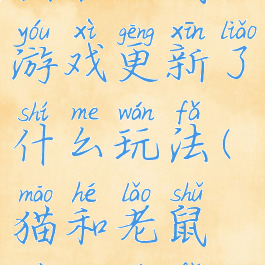 yóu xì gēng xīn liǎo
游戏更新了
shí me wán fǎ
什么玩法(
māo hé lǎo shǔ
猫和老鼠